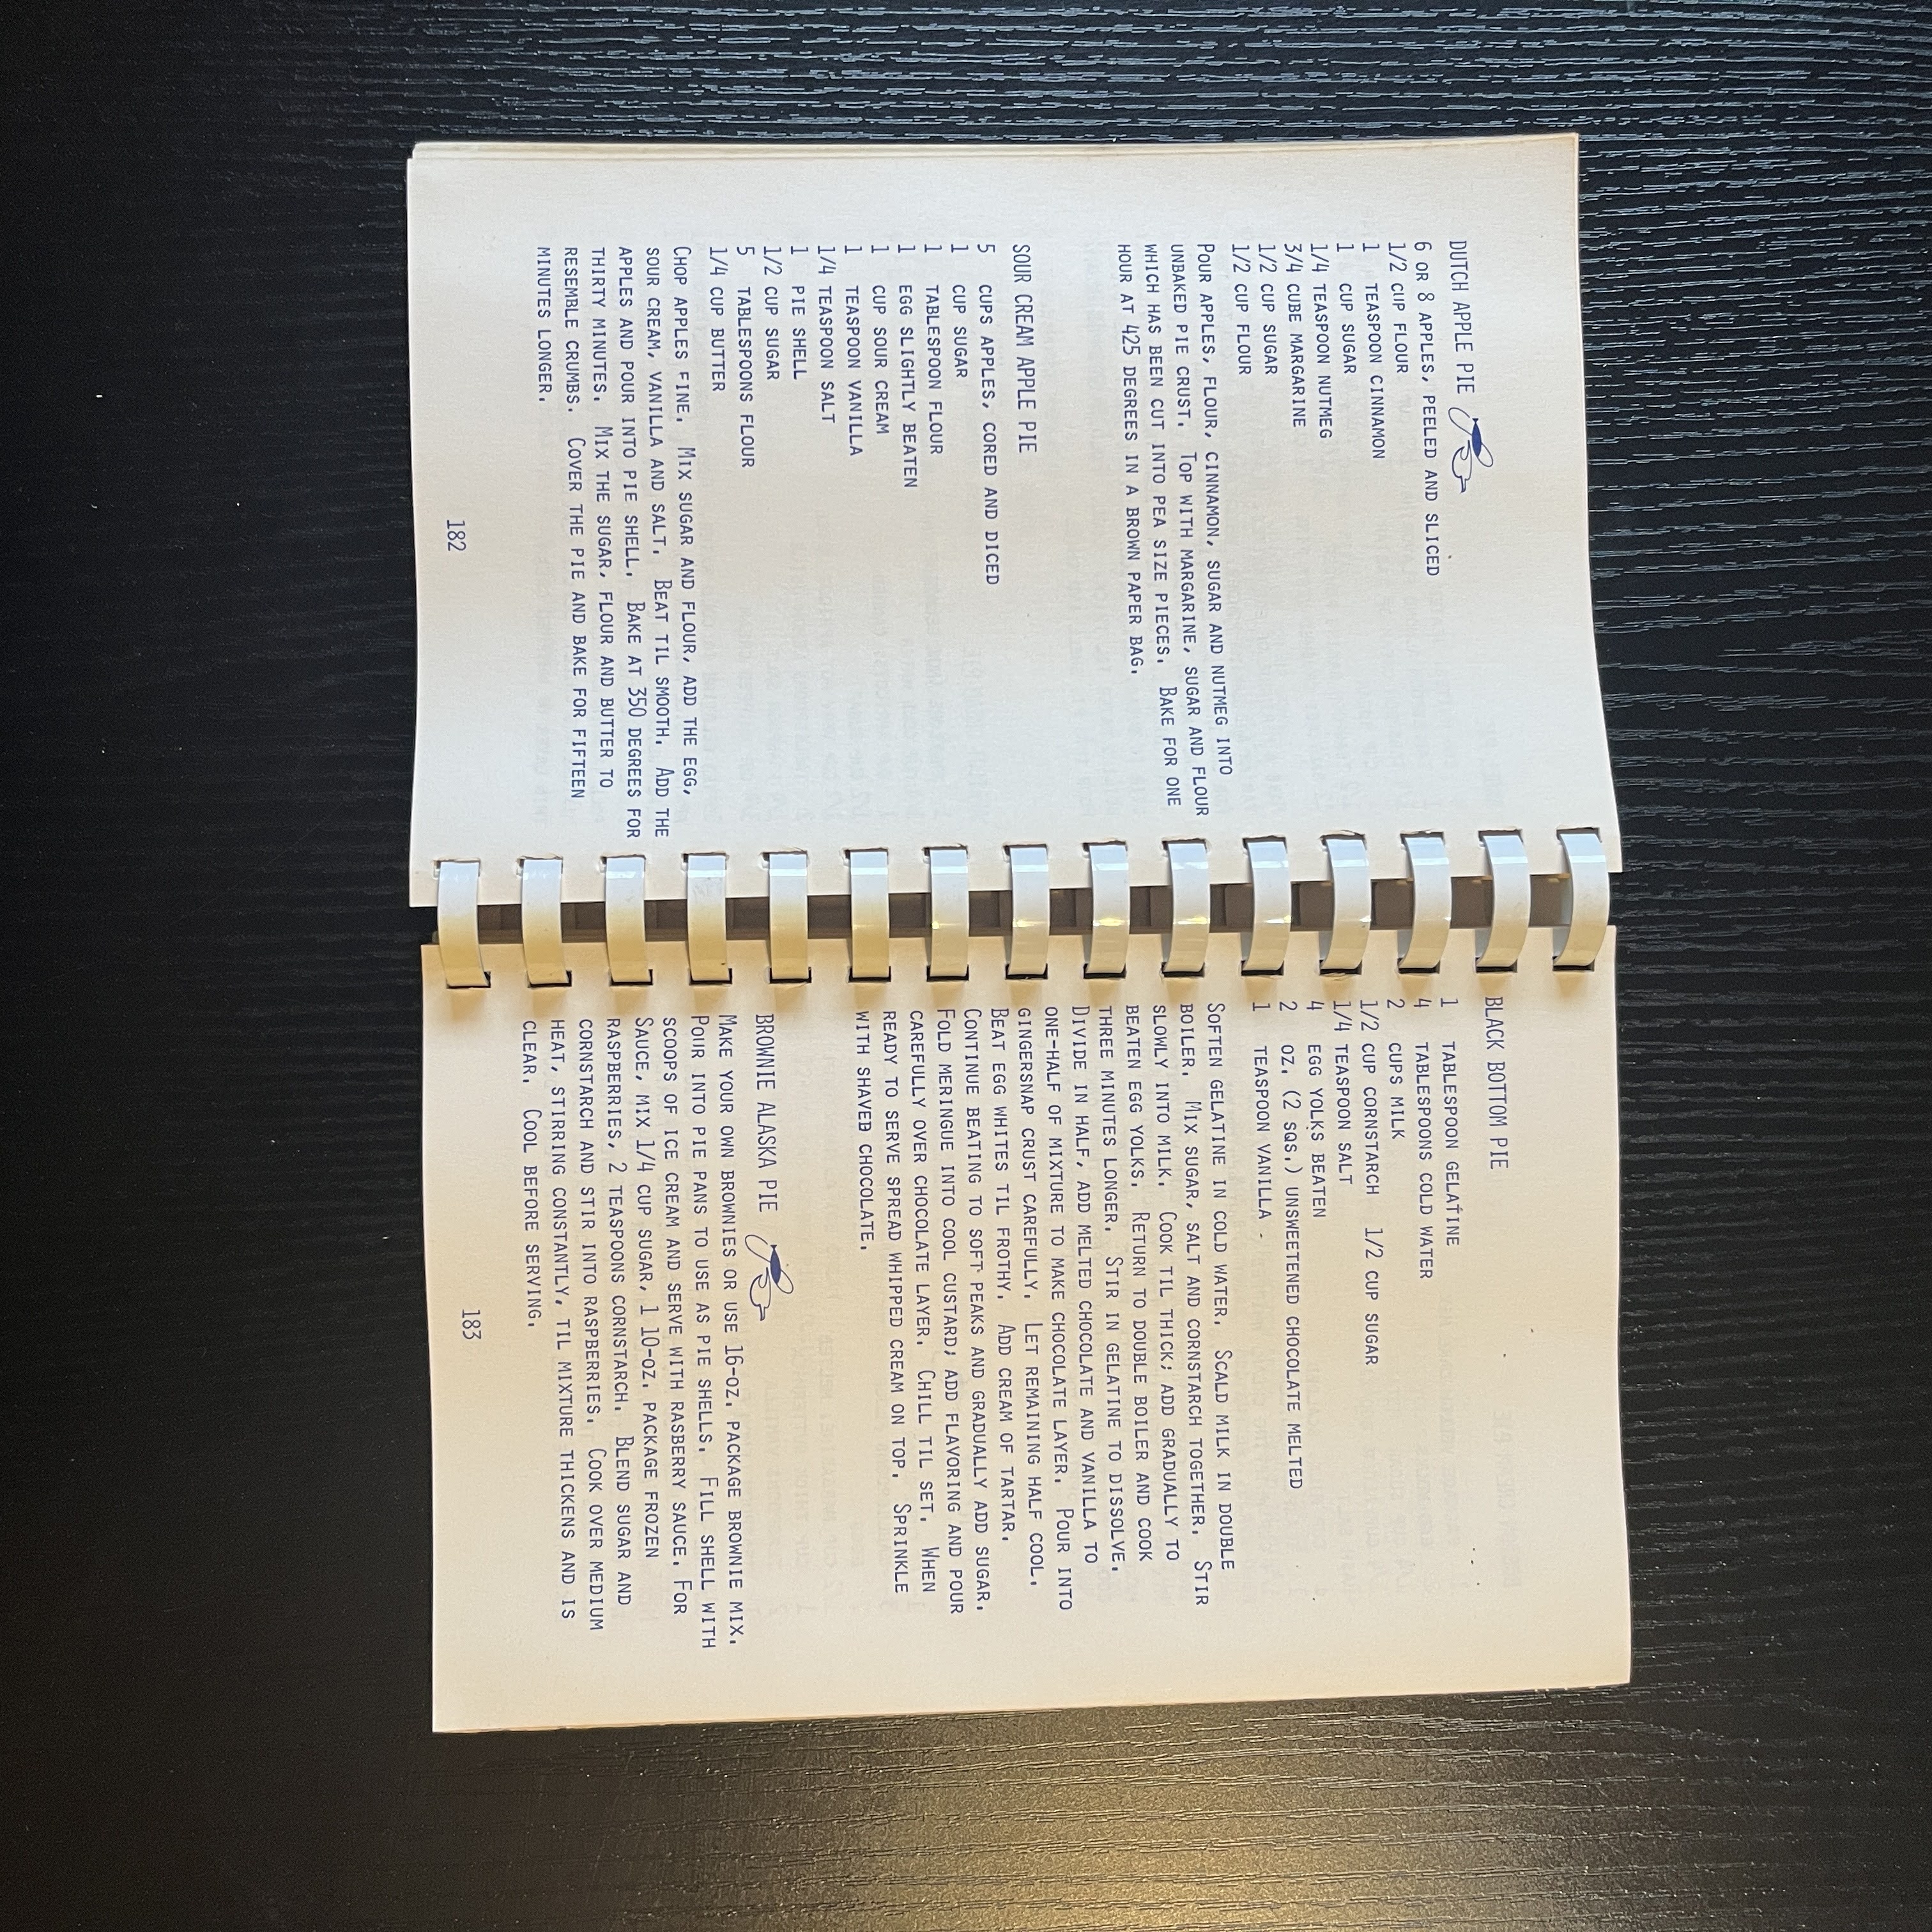 DUTCH APPLE PIE
6 OR 8 APPLES, PEELED AND SLICED
1/2 CUP FLOUR
1 TEASPOON CINNAMON
1 CUP SUGAR
1/4 TEASPOON NUTMEG
3/4 CUBE MARGARINE
1/2 CUP SUGAR
1/2 CUP FLOUR
POUR APPLES, FLOUR, CINNAMON, SUGAR AND NUTMEG INTO
UNBAKED PIE CRUST. TOP WITH MARGARINE, SUGAR AND FLOUR
WHICH HAS BEEN CUT INTO PEA SIZE PIECES. BAKE FOR ONE
HOUR AT 425 DEGREES IN A BROWN PAPER BAG.
SOUR CREAM APPLE PIE
5 CUPS APPLES, CORED AND DICED
1 CUP SUGAR
1 TABLESPOON FLOUR
1 EGG SLIGHTLY BEATEN
1 CUP SOUR CREAM
1 TEASPOON VANILLA
1/4 TEASPOON SALT
1 PIE SHELL
1/2 CUP SUGAR
5 TABLESPOONS FLOUR
1/4 CUP BUTTER
CHOP APPLES FINE. MIX SUGAR AND FLOUR, ADD THE EGG,
SOUR CREAM, VANILLA AND SALT. BEAT TIL SMOOTH. ADD THE
APPLES AND POUR INTO PIE SHELL. BAKE AT 350 DEGREES FOR
THIRTY MINUTES. MIX THE SUGAR, FLOUR AND BUTTER TO
RESEMBLE CRUMBS. COVER THE PIE AND BAKE FOR FIFTEEN
MINUTES LONGER.
182
BLACK BOTTOM PIE
1 TABLESPOON GELATINE
4 TABLESPOONS COLD WATER
2 CUPS MILK
1/2 CUP CORNSTARCH 1/2 CUP SUGAR
1/4 TEASPOON SALT
4 EGG YOLKS BEATEN
2 OZ. (2 SQS.) UNSWEETENED CHOCOLATE MELTED
1 TEASPOON VANILLA
SOFTEN GELATINE IN COLD WATER. SCALD MILK IN DOUBLE
BOILER. MIX SUGAR, SALT AND CORNSTARCH TOGETHER. STIR
SLOWLY INTO MILK. COOK TIL THICK; ADD GRADUALLY TO
BEATEN EGG YOLKS. RETURN TO DOUBLE BOILER AND COOK
THREE MINUTES LONGER. STIR IN GELATINE TO DISSOLVE.
DIVIDE IN HALF, ADD MELTED CHOCOLATE AND VANILLA TO
ONE-HALF OF MIXTURE TO MAKE CHOCOLATE LAYER. POUR INTO
GINGERSNAP CRUST CAREFULLY. LET REMAINING HALF COOL.
BEAT EGG WHITES TIL FROTHY. ADD CREAM OF TARTAR.
CONTINUE BEATING TO SOFT PEAKS AND GRADUALLY ADD SUGAR.
FOLD MERINGUE INTO COOL CUSTARD; ADD FLAVORING AND POUR
CAREFULLY OVER CHOCOLATE LAYER. CHILL TIL SET. WHEN
READY TO SERVE SPREAD WHIPPED CREAM ON TOP. SPRINKLE
WITH SHAVED CHOCOLATE.
BROWNIE ALASKA PIE
MAKE YOUR OWN BROWNIES OR USE 16-OZ. PACKAGE BROWNIE MIX.
POUR INTO PIE PANS TO USE AS PIE SHELLS. FILL SHELL WITH
SCOOPS OF ICE CREAM AND SERVE WITH RASBERRY SAUCE. FOR
SAUCE, MIX 1/4 CUP SUGAR, 1 10-OZ. PACKAGE FROZEN
RASPBERRIES, 2 TEASPOONS CORNSTARCH. BLEND SUGAR AND
CORNSTARCH AND STIR INTO RASPBERRIES. COOK OVER MEDIUM
HEAT, STIRRING CONSTANTLY, TIL MIXTURE THICKENS AND IS
CLEAR. COOL BEFORE SERVING.
183